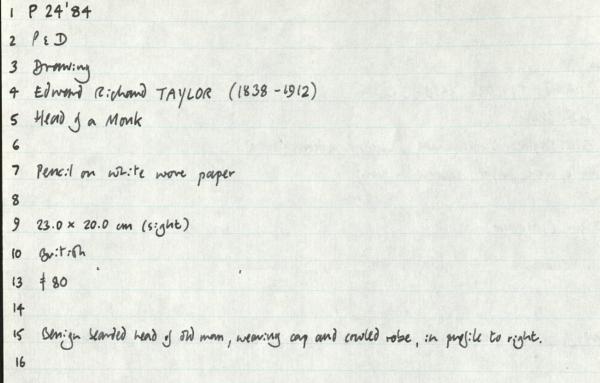 1 P 24'84
2 P & D
3 Drawing
4 Edward Richard TAYLOR (1838-1912)
5 Head of a Monk
6
7 Pencil on white wove paper
8
9 23.0 x 20.0 cm (sight)
10 British
13 £80
14
15 Benign bearded head of old man, wearing cap and cowled robe, in profile to right.
16